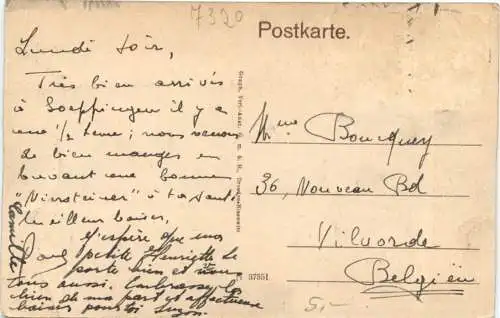 7320
Postkarte.
Lundi soir,
Très bien arrivés
à Goeppingen il y a
une 1/2 heure ; nous venons
de bien manger en
buvant une bonne
"Niersteiner" à ta santé
Meilleur baiser,
Camille
J'espère que ma
petite Henriette se
porte bien et vous
tous aussi. Embrasse-la
bien de ma part et affectueux
baisers pour toi
Mme Boucquey
36, Nouveau Bd
Vilvorde
Belgïen
37551
5,-